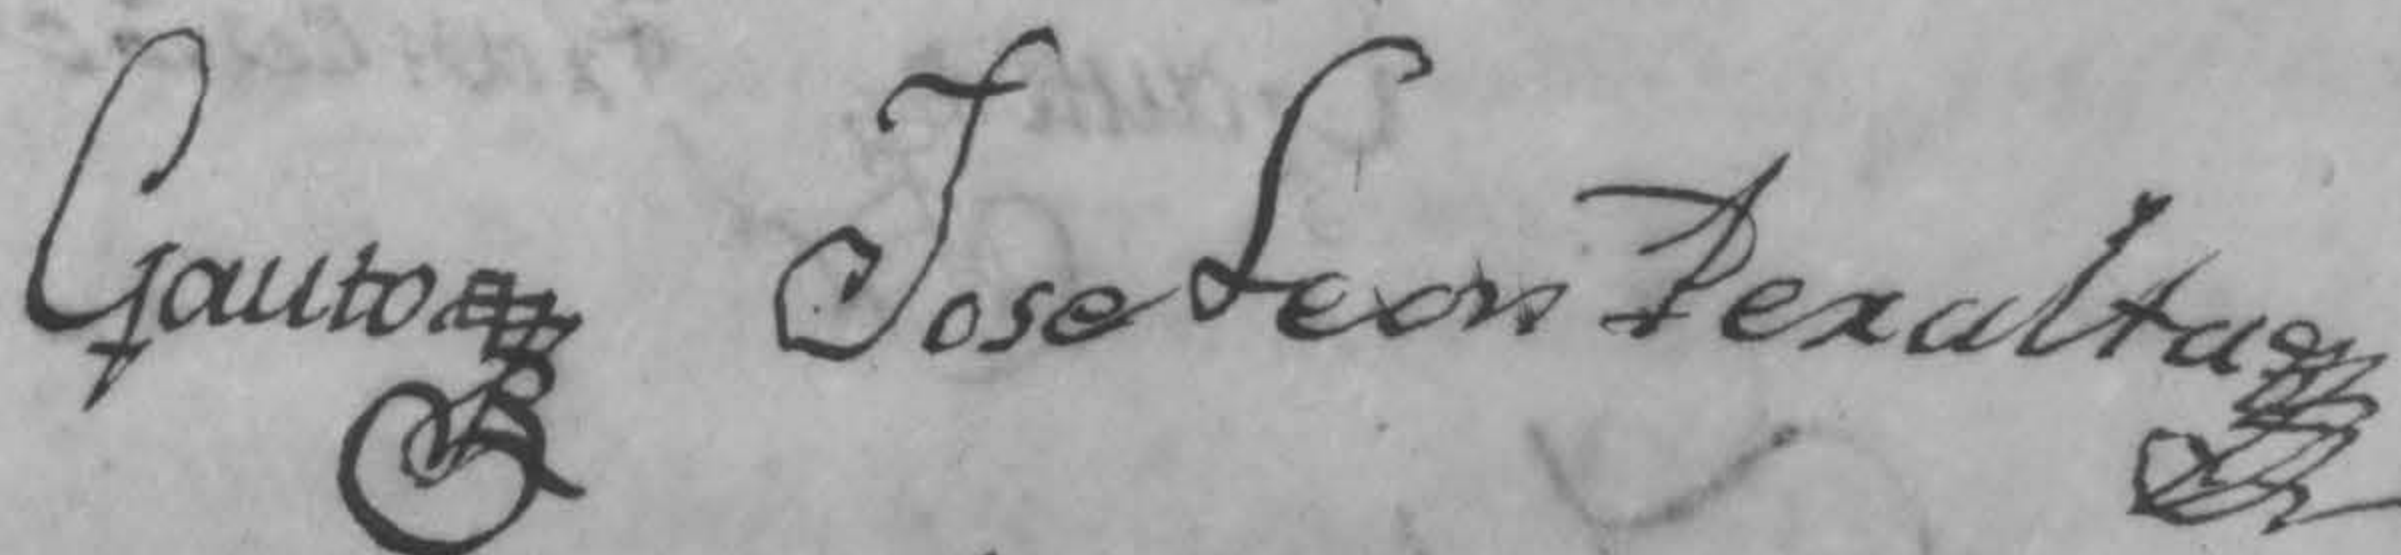 Gauto Jose Leon Peralta